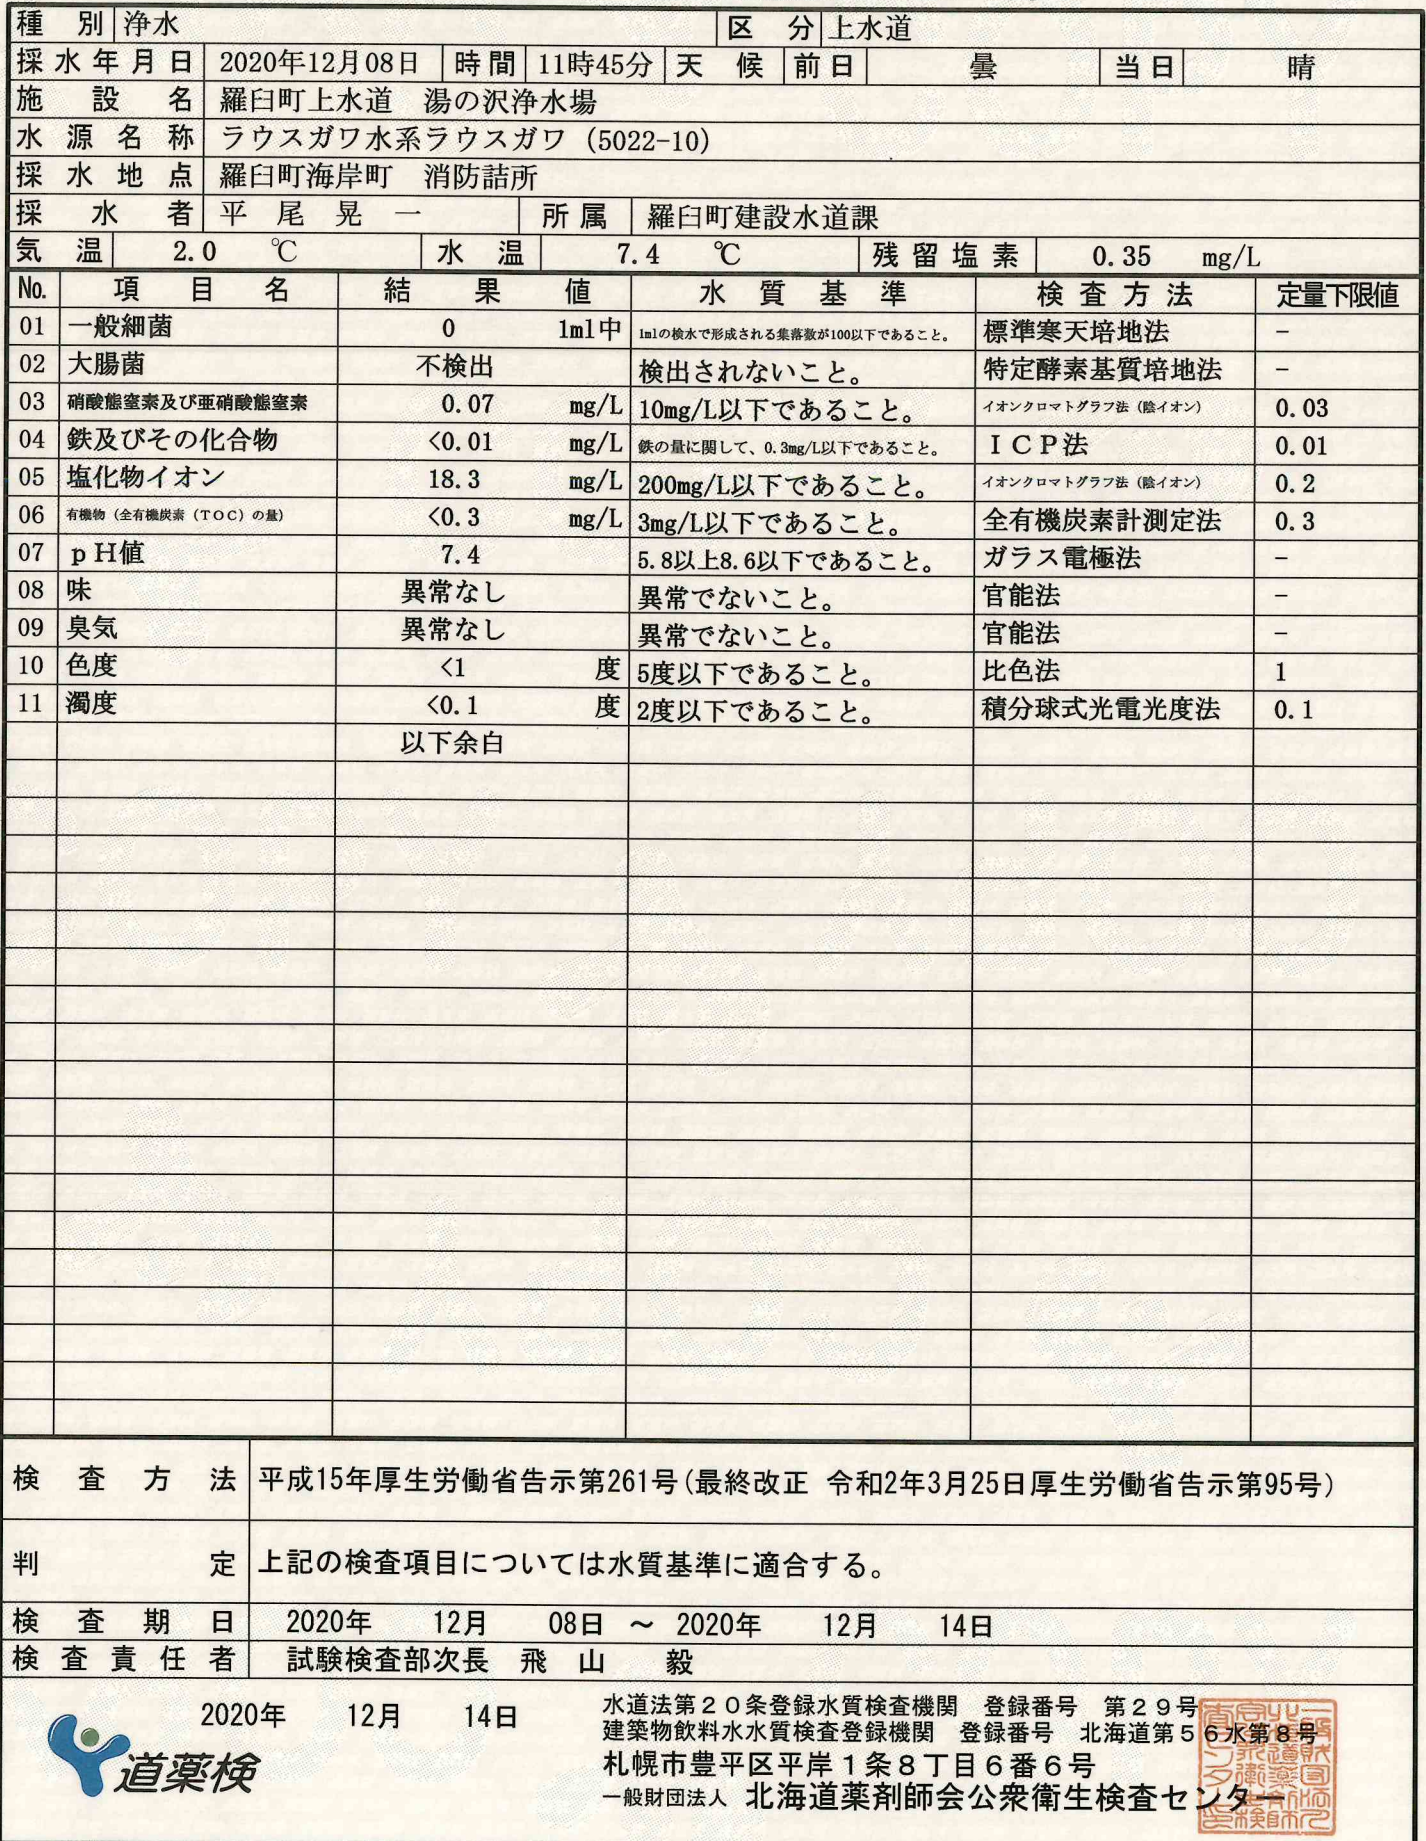 種別 浄水 区分 上水道
採水年月日 2020年12月08日 時間 11時45分 天候 前日 曇 当日 晴
施設名 羅臼町上水道 湯の沢浄水場
水源名称 ラウスガワ水系ラウスガワ (5022-10)
採水地点 羅臼町海岸町 消防詰所
採水者 平尾晃一 所属 羅臼町建設水道課
気温 2.0 ℃ 水温 7.4 ℃ 残留塩素 0.35 mg/L
No. 項目名 結果値 水質基準 検査方法 定量下限値
01 一般細菌 0 1ml中 1mlの検水で形成される集落数が100以下であること。 標準寒天培地法 －
02 大腸菌 不検出 検出されないこと。 特定酵素基質培地法 －
03 硝酸態窒素及び亜硝酸態窒素 0.07 mg/L 10mg/L以下であること。 イオンクロマトグラフ法（陰イオン） 0.03
04 鉄及びその化合物 <0.01 mg/L 鉄の量に関して、0.3mg/L以下であること。 ＩＣＰ法 0.01
05 塩化物イオン 18.3 mg/L 200mg/L以下であること。 イオンクロマトグラフ法（陰イオン） 0.2
06 有機物（全有機炭素（ＴＯＣ）の量） <0.3 mg/L 3mg/L以下であること。 全有機炭素計測定法 0.3
07 ｐＨ値 7.4 5.8以上8.6以下であること。 ガラス電極法 －
08 味 異常なし 異常でないこと。 官能法 －
09 臭気 異常なし 異常でないこと。 官能法 －
10 色度 <1 度 5度以下であること。 比色法 1
11 濁度 <0.1 度 2度以下であること。 積分球式光電光度法 0.1
以下余白
検査方法 平成15年厚生労働省告示第261号(最終改正 令和2年3月25日厚生労働省告示第95号)
判定 上記の検査項目については水質基準に適合する。
検査期日 2020年 12月 08日 ～ 2020年 12月 14日
検査責任者 試験検査部次長 飛山 毅
2020年 12月 14日
水道法第２０条登録水質検査機関 登録番号 第２９号
建築物飲料水水質検査登録機関 登録番号 北海道第５６水第８号
札幌市豊平区平岸１条８丁目６番６号
一般財団法人 北海道薬剤師会公衆衛生検査センター
道薬検